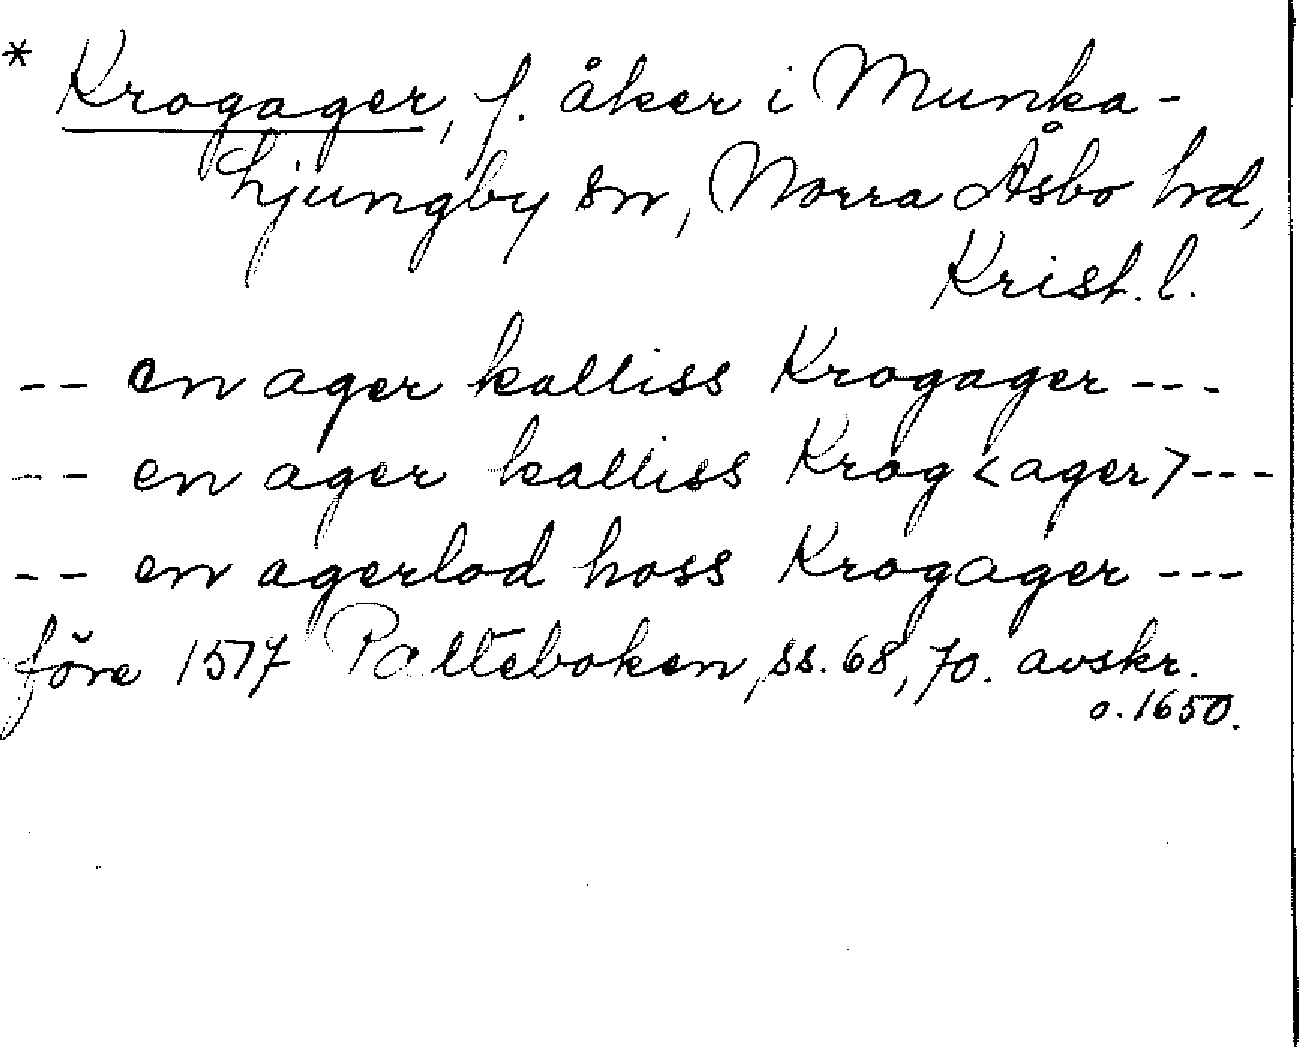 * Krogager, f. åker i Munka-
hjungby sn, Norra Åsbo hd,
Krist. l.
-- en ager kalliss Krogager ---
-- en ager kalliss Krog <ager> ---
-- en agerlod hoss Krogager ---
före 1577 Palteboken, ss. 68, 70. avskr.
o. 1650.